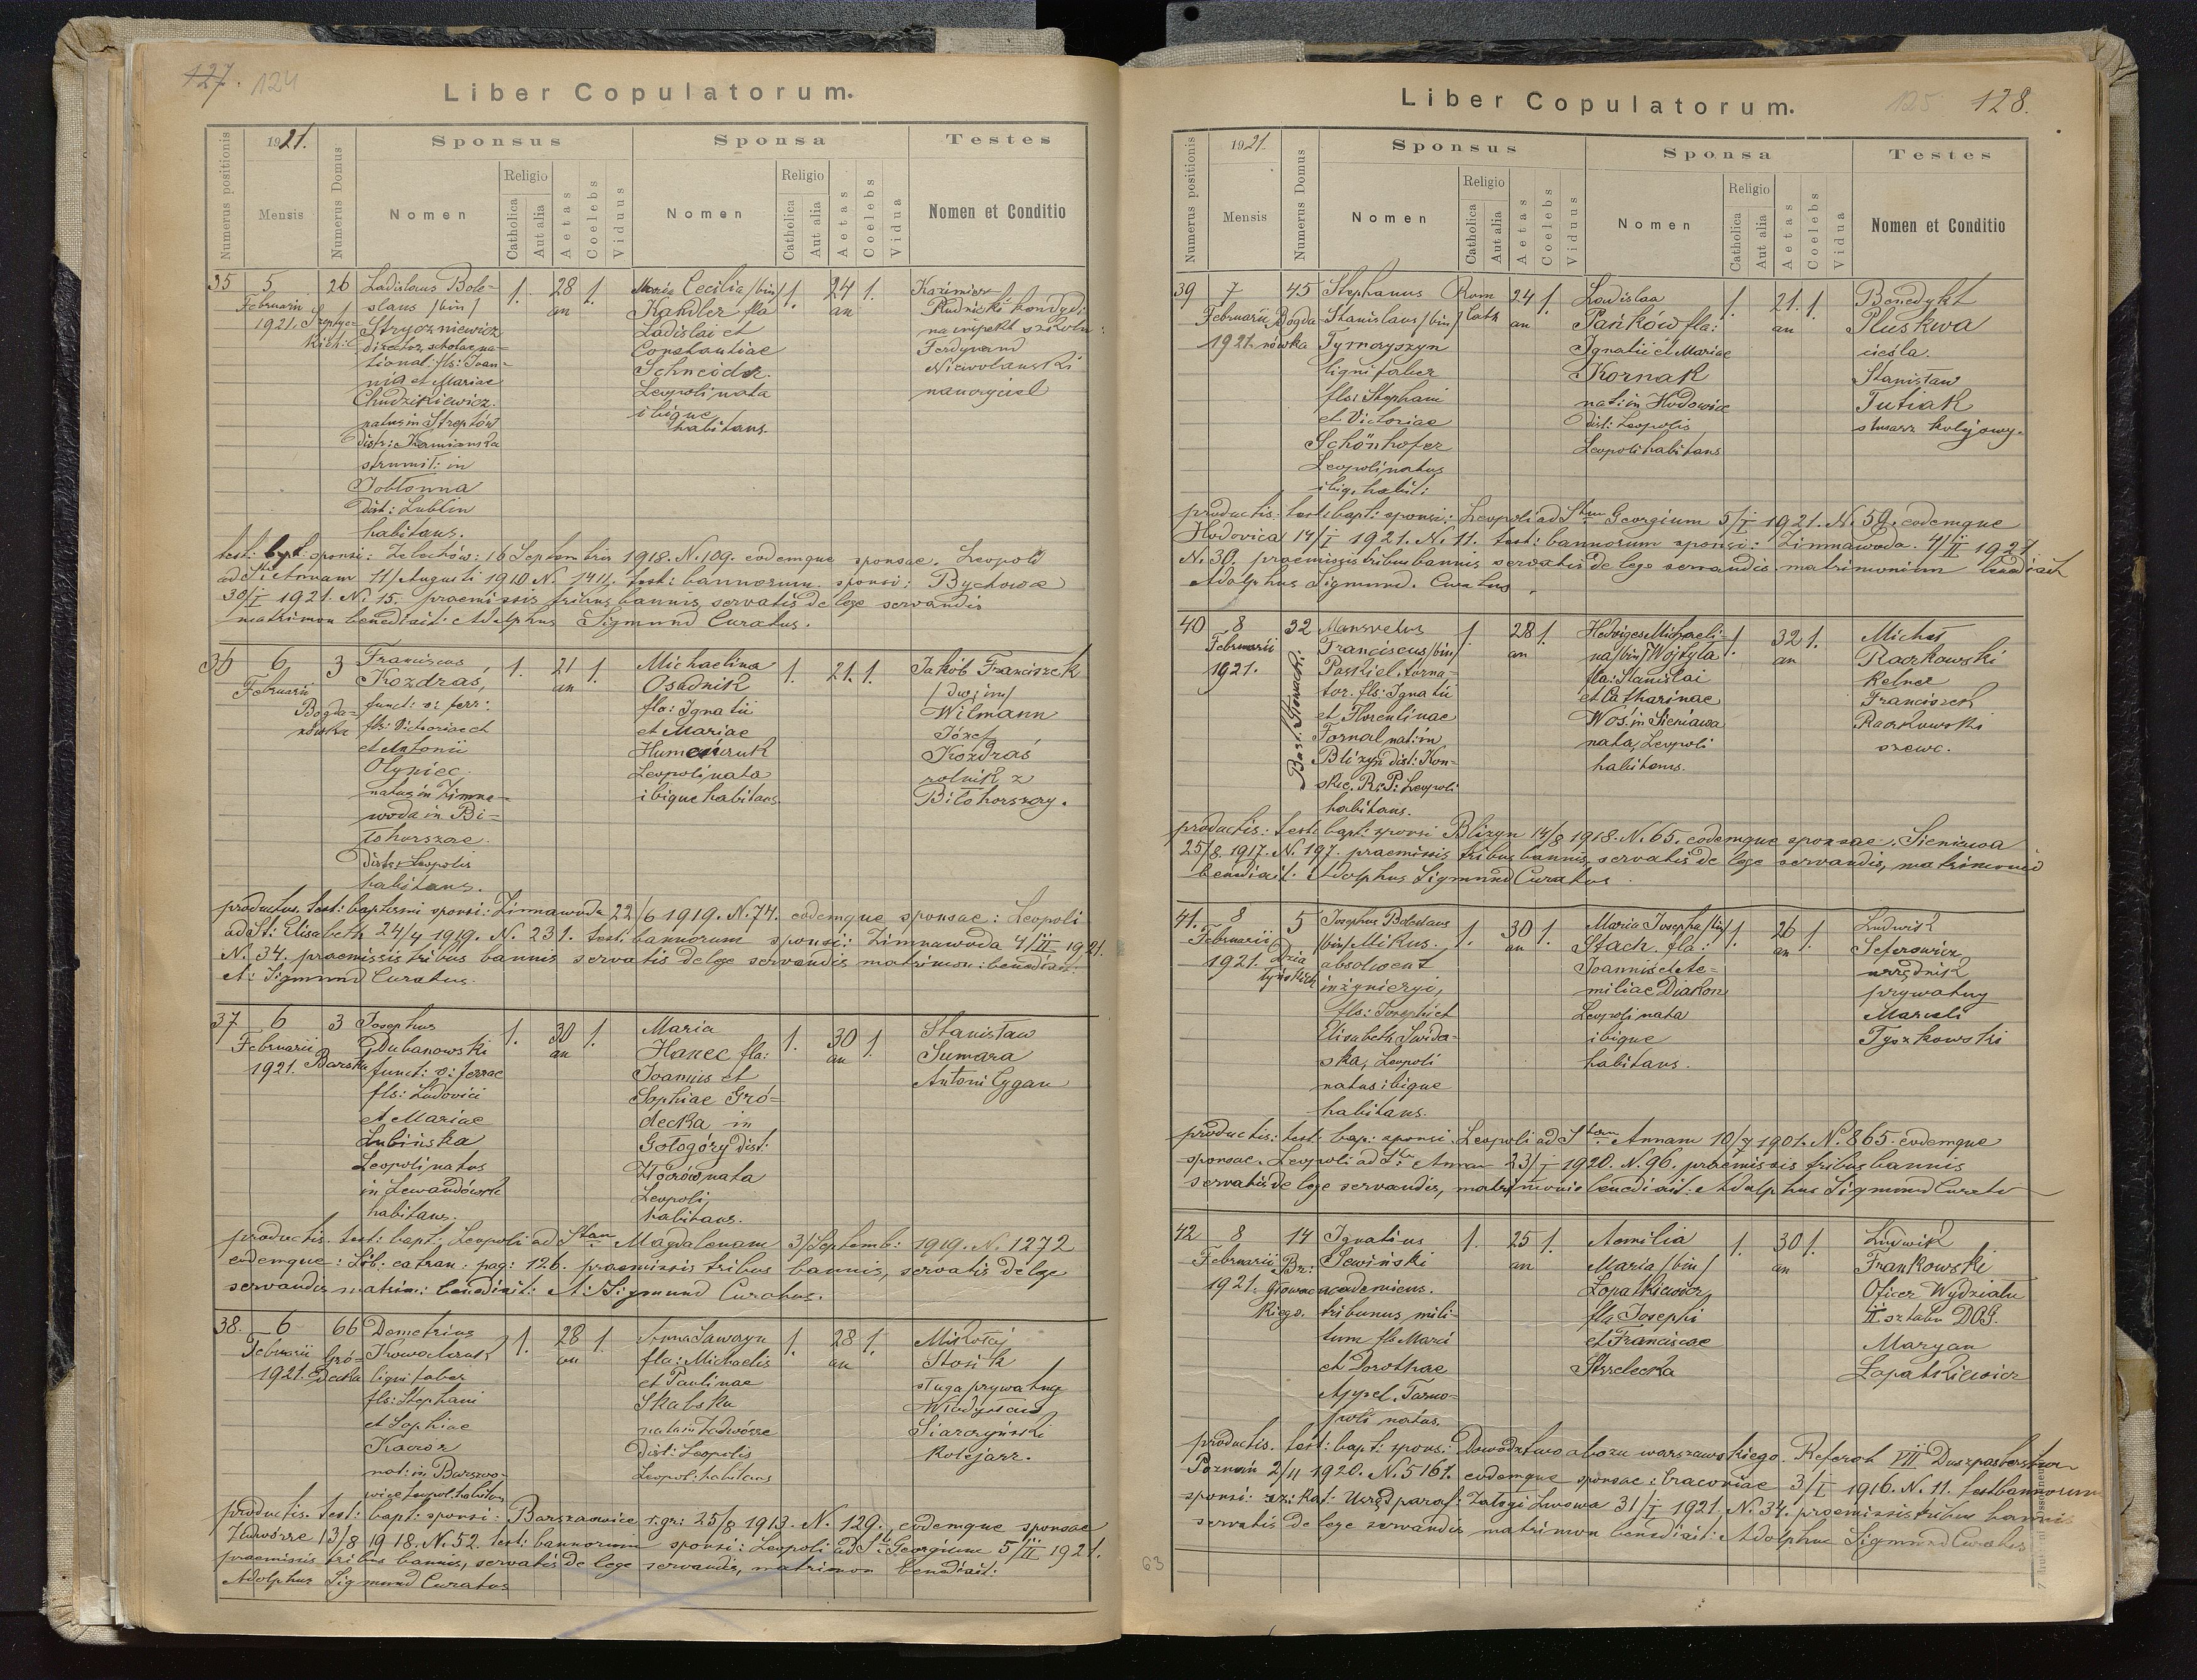 127. 124
Liber Copulatorum.
Numerus positionis
1921.
Mensis
Numerus Domus
Sponsus
Nomen
Religio
Catholica
Aut alia
Aetas
Coelebs
Viduus
Sponsa
Nomen
Religio
Catholica
Aut alia
Aetas
Coelebs
Vidua
Testes
Nomen et Conditio
35
5
Februarii
1921.
26
Ladislaus Bole-
slaus /bin/
Stryczniewicz
director scholae na-
tional. fls: Joan-
nis et Mariae
Chudzikiewicz.
natus in Streptów
distr: Kamionka
strumił: in
Jabłonna
dist: Lublin
habitans.
1.
28
an
1.
Maria Cecilia /bin/
Kandler fla
Ladislai et
Constantiae
Schneider.
Leopoli nata
ibique
habitans.
1.
24
an
1.
Kazimierz
Rudnicki
Ferdynand
Niewolanski
nauczyciel
test: bapt: sponsi: Żelechów: 16 Septembris 1918. N. 109. eodemque sponsae. Leopoli
ad St. Annam 11/Augusti 1910 N. test: bannorum sponsi: Bychawa
30/I 1921. N. 15. praemissis tribus bannis servatis de lege servandis
matrimon benedixit: Adolphus Sigmund Curatus.
36
6
Februarii
3
Bogda=
nówka
Franciscus
Kozdraś,
funct: vi ferr:
fls: Victoriae et
et Antonii
Olyniec.
natus in Zimna=
woda in Bi=
łohorszcze.
distr: Leopolis
habitans.
1.
21
an
1.
Michaelina
Osadnik
fla: Ignatii
et Mariae
Leopoli nata
ibique habitans.
1.
21.
1.
Jakób Franciszek
/dwojim/
Wilmann
Józef
Kozdraś
rolnik z
Biłohorszczy.
productis test: baptismi sponsi: Zimnawoda 22/6 1919. N. 74. eodemque sponsae: Leopoli
ad St: Elisabeth 24/4 1919. N. 231. test: bannorum sponsi: Zimnawoda 4/II 1921.
N. 34. praemissis tribus bannis servatis de lege servandis matrimon: benedixit:
A: Sigmund Curatus.
37
6
Februarii
1921.
3
Barska
Josephus
Dubanowski
funct: vi ferrae
fls: Ludovici
et Mariae
Lubińska
Leopoli natus
in Lewandówka
habitans.
1.
30
an
1.
Maria
Hanec fla:
Joannis et
Sophiae Gró=
decka in
Gołogóry dist:
Złoczów nata
Leopoli
habitans.
1.
30
an
1.
Stanisław
Sumara
Antoni Cygan
productis. test: bapt: Leopoli ad Stam Magdalenam 3/Septemb: 1919. N. 1272
eodemque: Lib: extran: pag: 126. praemissis tribus bannis, servatis de lege
servandis matrim: benedixit: A: Sigmund Curatus.
38.
6
Februarii
1921.
66
Gró=
decka
Demetrius
Kowalczuk
ligni faber
fls: Stephani
et Sophiae
Kaczor
nat: in Barszczo-
wice Leopol. habitans
1.
28
an
1.
Anna Sawczyn
fla: Michaelis
et Paulinae
Skabska
nata in Zadwórze
Dist: Leopolis
Leopol: habitans
1.
28
an
1.
Mikołaj
Stosik
sługa prywatny
Władysław
Siarczyński
kolejarz.
productis. test: bapt: sponsi: Barszczowice r. gr: 25/8 1913. N. 129. eodemque sponsae
Zadwórze 13/8 1918. N. 52. test: bannorum sponsi: Leopoli ad St: Georgium 5/II 1921.
praemissis tribus bannis, servatis de lege servandis, matrimon benedixit:
Adolphus Sigmund Curatus
Liber Copulatorum.
125 128.
Numerus positionis
1921.
Mensis
Numerus Domus
Sponsus
Nomen
Religio
Catholica
Aut alia
Aetas
Coelebs
Viduus
Sponsa
Nomen
Religio
Catholica
Aut alia
Aetas
Coelebs
Vidua
Testes
Nomen et Conditio
39
7
Februarii
1921.
45
Bogda
nówka
Stephanus
Stanislaus /bin/
Tymczyszyn
ligni faber
fls: Stephani
et Victoriae
Schönhofer
Leopoli natus
ibiq. habit:
Rom
Cath
24
an
1.
Ladislaa
Pańków fla:
Ignatii et Mariae
Kornak
nat: in Hodowice
Dist: Leopolis
Leopoli habitans
1.
21.
an
1.
Benedykt
Pluskwa
cieśla.
Stanisław
Tutiak
ślusarz kolejowy.
productis. test: bapt: sponsi: Leopoli ad Stum Georgium 5/I 1921. N. 59. eodemque
Hodovica 14/I 1921. N. 11. test: bannorum sponsi: Zimnawoda. 4/II 1921
N. 30. praemissis tribus bannis servatis de lege servandis matrimonium benedixit
Adolphus Sigmund. Curatus.
40
8
Februarii
1921.
32
Mansvetus
Franciscus /bin/
Paskiel torna-
tor. fls: Ignatii
et Florentinae
Fornal nat: in
Bliżyn dist: Kon-
skie. R. P. Leopoli
habitans.
1.
28
an
1.
Hedviges Michaeli-
na /bin/ Wojtyła
fla: Stanislai
et Catharinae
Woś. in Sieniawa
nata, Leopoli
habitans.
1.
32
an
1.
Michał
Raczkowski
kelner
Franciszek
Raczkowski
szewc.
productis: test: bapt: sponsi Bliżyn 14/8 1918. N. 65. eodemque sponsae. Sieniawa
25/8. 1917. N. 197. praemissis tribus bannis, servatis de lege servandis, matrimonio
benedixit. Adolphus Sigmund Curatus.
41.
8
Februarii
1921.
5
Dzia
łyńskich
Josephus Boleslaus
/bin/ Mikus.
absolwent
inżynieryi,
fls: Josephi et
Elisabeth Swida-
ska, Leopoli
natus ibique
habitans.
1.
30
an
1.
Maria Josepha /bin/
Stach. fla:
Joannis et Ae=
miliae Diakon
Leopoli nata
ibique
habitans.
1.
26
an
1.
Ludwik
Seferowicz
urzędnik
prywatny
Marceli
Tyszkowski
productis: test: bap: sponsi Leopoli ad Stam Annam 10/7 1901. N. 865. eodemque
sponsae. Leopoli ad St. Annam 23/I 1920. N. 96. praemissis tribus bannis
servatis de lege servandis, matrimonio benedixit: Adolphus Sigmund Curatus
42
8
Februarii
1921.
14
Br:
Głowac
kiego.
Ignatius
Sewiński
academicus.
tribunus mili-
tum fls Marci
et Dorothae
Appel. Tarno-
poli natus.
1.
25
an
1.
Aemilia
Maria /bin/
Łopatkiewicz
fla Josephi
et Franciscae
Strzelecka
1.
30
an
1.
Ludwik
Frankowski
Oficer Wydziału
II sztabu DOG.
Maryan
Łopatkiewicz
productis. test: bapt: sponsi: Dowództwo obozu warszawskiego. Referat VII Duszpasterstwa
Poznań 2/11 1920. N. 5161. eodemque sponsae: Cracoviae 3/I 1916. N. 11. test bannorum
sponsi: rz: kat: Urząd paraf: Załogi Lwowa 31/I 1921. N. 34. praemissis tribus bannis
servatis de lege servandis matrimon benedixit: Adolphus Sigmund Curatus
63